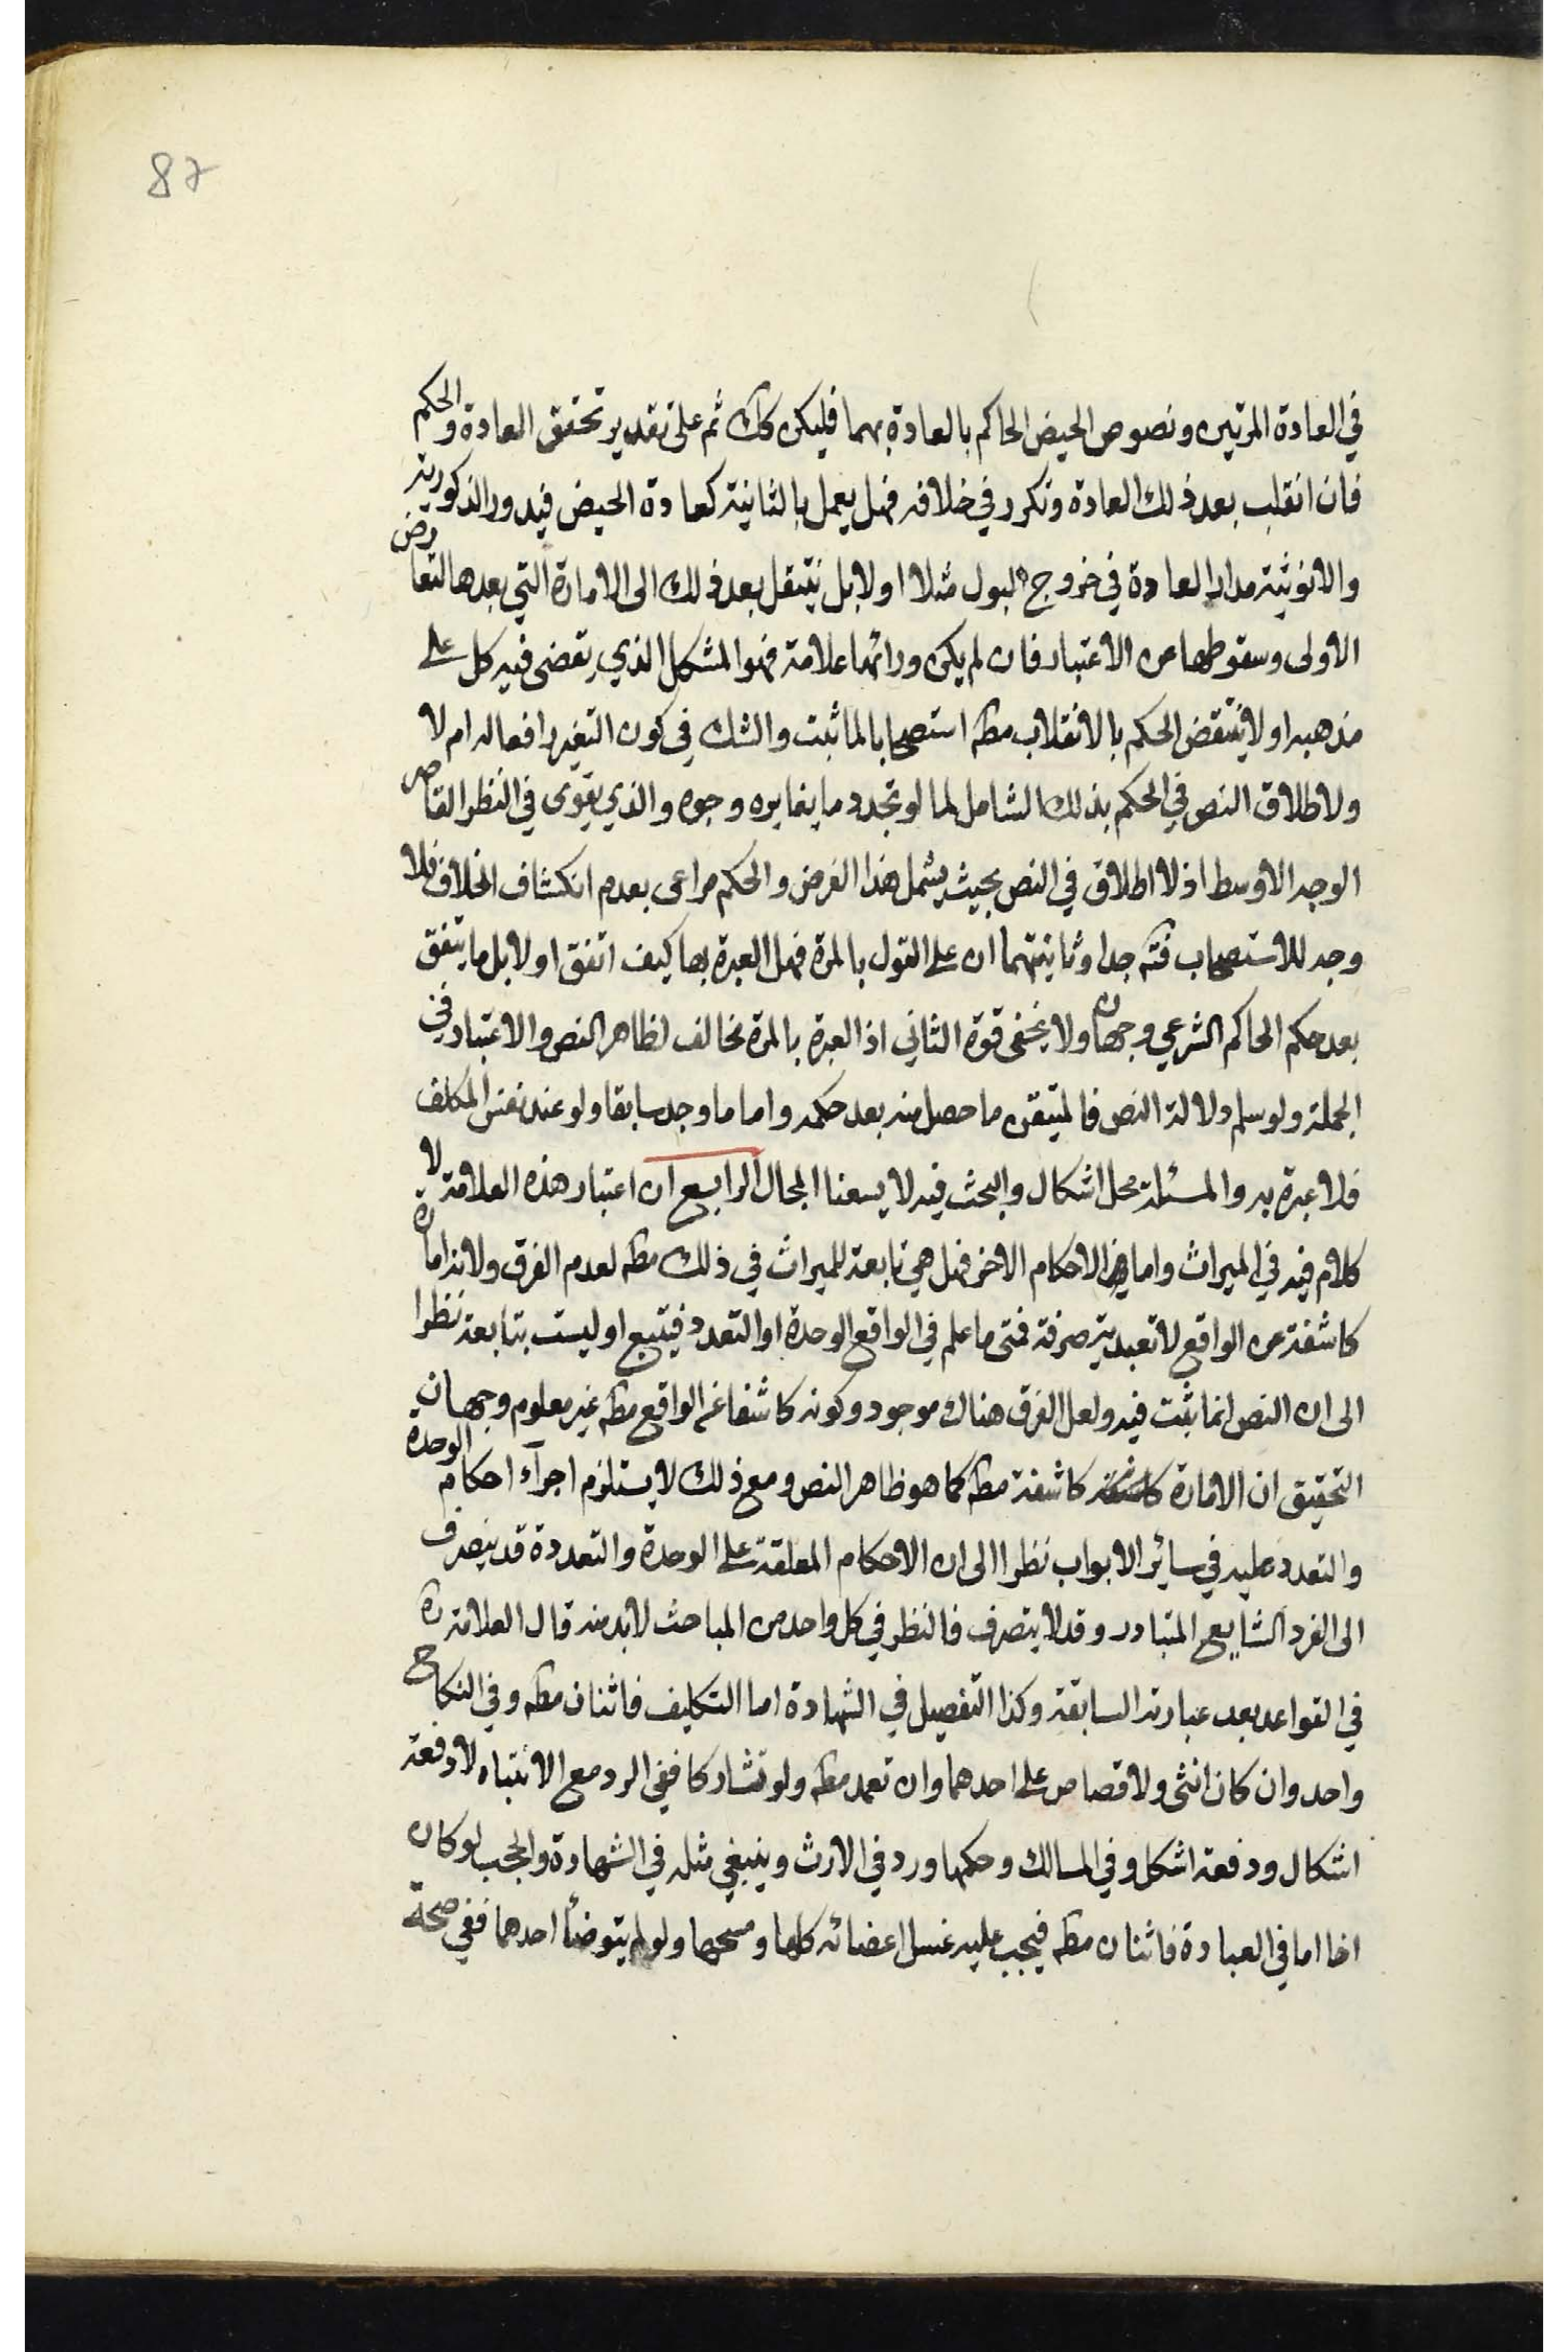 87
في العادة المرتين ونصوص الحيض الحاكم بالعادة بهما فليكن كك ثم على تقدير تحقق العادة والحكم
فان انقلب بعد ذلك العادة وتكرر في خلافه فهل يعمل بالثانية كعادة الحيض فيدور الذكورية
والانوثية مدار العادة في خروج البول مثلا او لا بل ينتقل بعد ذلك الى الامارة التي بعدها لتعارض
الاولى وسقوطها عن الاعتبار فان لم يكن ورائها علامة فهو المشكل الذي يقضى فيه كل على
مذهبه او لا ينتقض الحكم بالانقلاب مطه استصحابا لما ثبت والشك في كون التغير رافعا له ام لا
ولاطلاق النص في الحكم بذلك الشامل لما لو تجدد ما يغايره وجوه والذي يقوى في النظر القاصر
الوجه الاوسط اذ لا اطلاق في النص بحيث يشمل هذا الفرض والحكم مراعى بعدم انكشاف الخلاف فلا
وجه للاستصحاب فته جدا وثانيتهما ان على القول بالمرة فهل العبرة بها كيف اتفق او لا بل ما يتفق
بعد حكم الحاكم الشرعي وجهان ولا يخفى قوة الثاني اذ العبرة بالمرة مخالف لظاهر النص والاعتبار في
الجملة ولو سلم دلالة النص فالمتيقن ما حصل منه بعد حكمه واما ما وجد سابقا ولو عند نفس المكلف
فلا عبرة به والمسئلة محل اشكال والبحث فيه لا يسعنا المجال الرابع ان اعتبار هذه العلامة لا
كلام فيه في الميراث واما في الاحكام الاخر فهل هي تابعة للميراث في ذلك مطه لعدم الفرق ولانه امارة
كاشفة عن الواقع لا تعبدية صرفة فمتى ما علم في الواقع الوحدة او التعدد فيتبع او ليست بتابعة نظرا
الى ان النص انما ثبت فيه ولعل الفرق هناك موجود وكونه كاشفا عن الواقع مطه غير معلوم وجهان
التحقيق ان الامارة كاشفة كاشفة مطه كما هو ظاهر النص ومع ذلك لا يستلزم اجراء احكام الوحدة
والتعدد عليه في سائر الابواب نظرا الى ان الاحكام المعلقة على الوحدة والتعددة قد ينصرف
الى الفرد الشايع المتبادر وقد لا يتصرف فالنظر في كل واحد من المباحث لابد منه قال العلامة ره
في القواعد بعد عبارته السابقة وكذا التفصيل في الشهادة اما التكليف فاثنان مطه وفي النكاح
واحد وان كان انثى ولا قصاص على احدهما وان تعمد مطه ولو تشاركا ففي الرد مع الانتباه لا دفعة
اشكال ودفعة اشكل وفي المسالك وحكمها ورد في الارث وينبغي مثله في الشهادة والحجب لو كان
اخا اما في العبادة فاثنان مطه فيجب عليه غسل اعضائه كلها ومسحها ولو لم يتوضأ احدهما ففي صحة